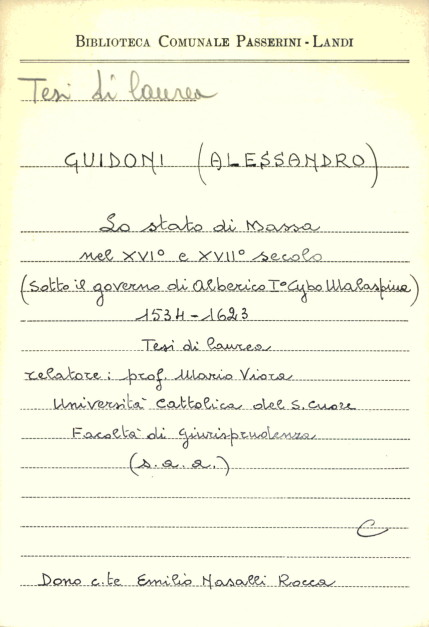 BIBLIOTECA COMUNALE PASSERINI - LANDI
Tesi di laurea
GUIDONI (ALESSANDRO)
Lo stato di Massa
nel XVI° e XVII° secolo
(Sotto il governo di Alberico I° Cybo Malaspina)
1534-1623
Tesi di laurea
relatore: prof. Mario Viora
Università Cattolica del S. Cuore
Facoltà di Giurisprudenza
(s.a.a.)
C
Dono c.te Emilio Nasalli Rocca